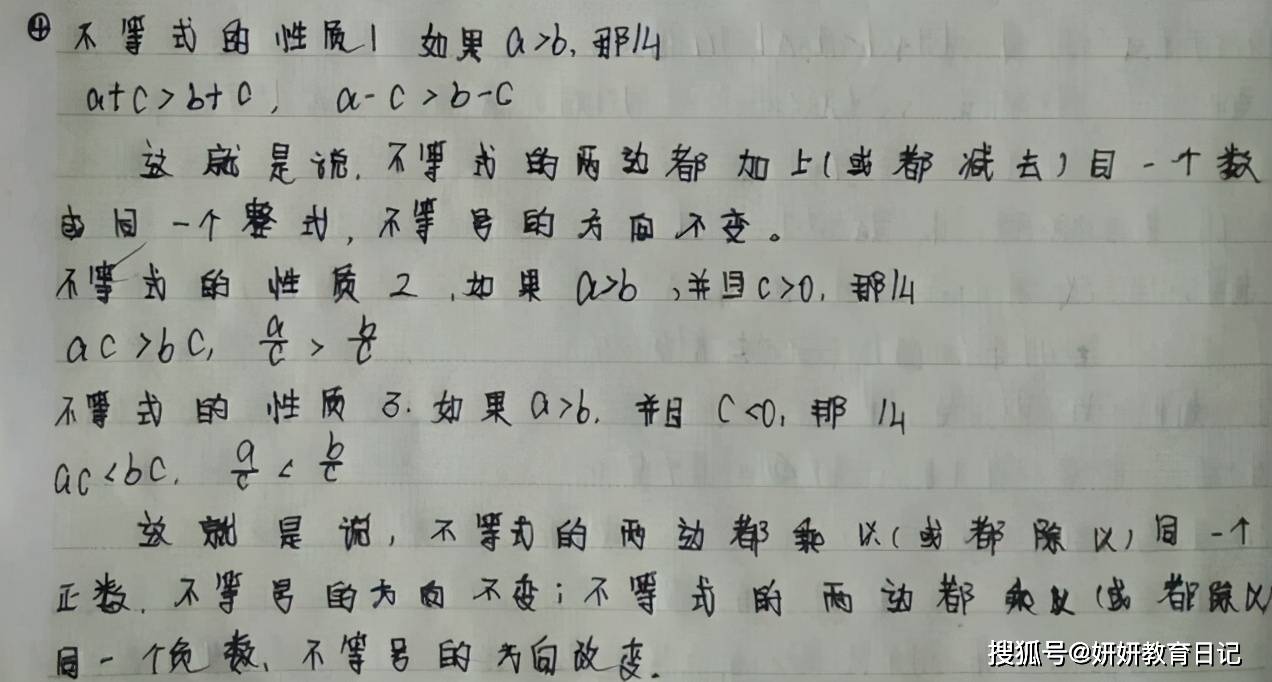 ④ 不等式的性质1 如果a>b,那么
a+c>b+c, a-c>b-c
这就是说,不等式的两边都加上(或都减去)同一个数
或同一个整式,不等号的方向不变。
不等式的性质2,如果a>b,并且c>0,那么
ac>bc, a/c > b/c
不等式的性质3.如果a>b,并且c<0,那么
ac<bc, a/c < b/c
这就是说,不等式的两边都乘以(或都除以)同一个
正数,不等号的方向不变;不等式的两边都乘以(或都除以
同一个负数,不等号的方向改变.
搜狐号@妍妍教育日记